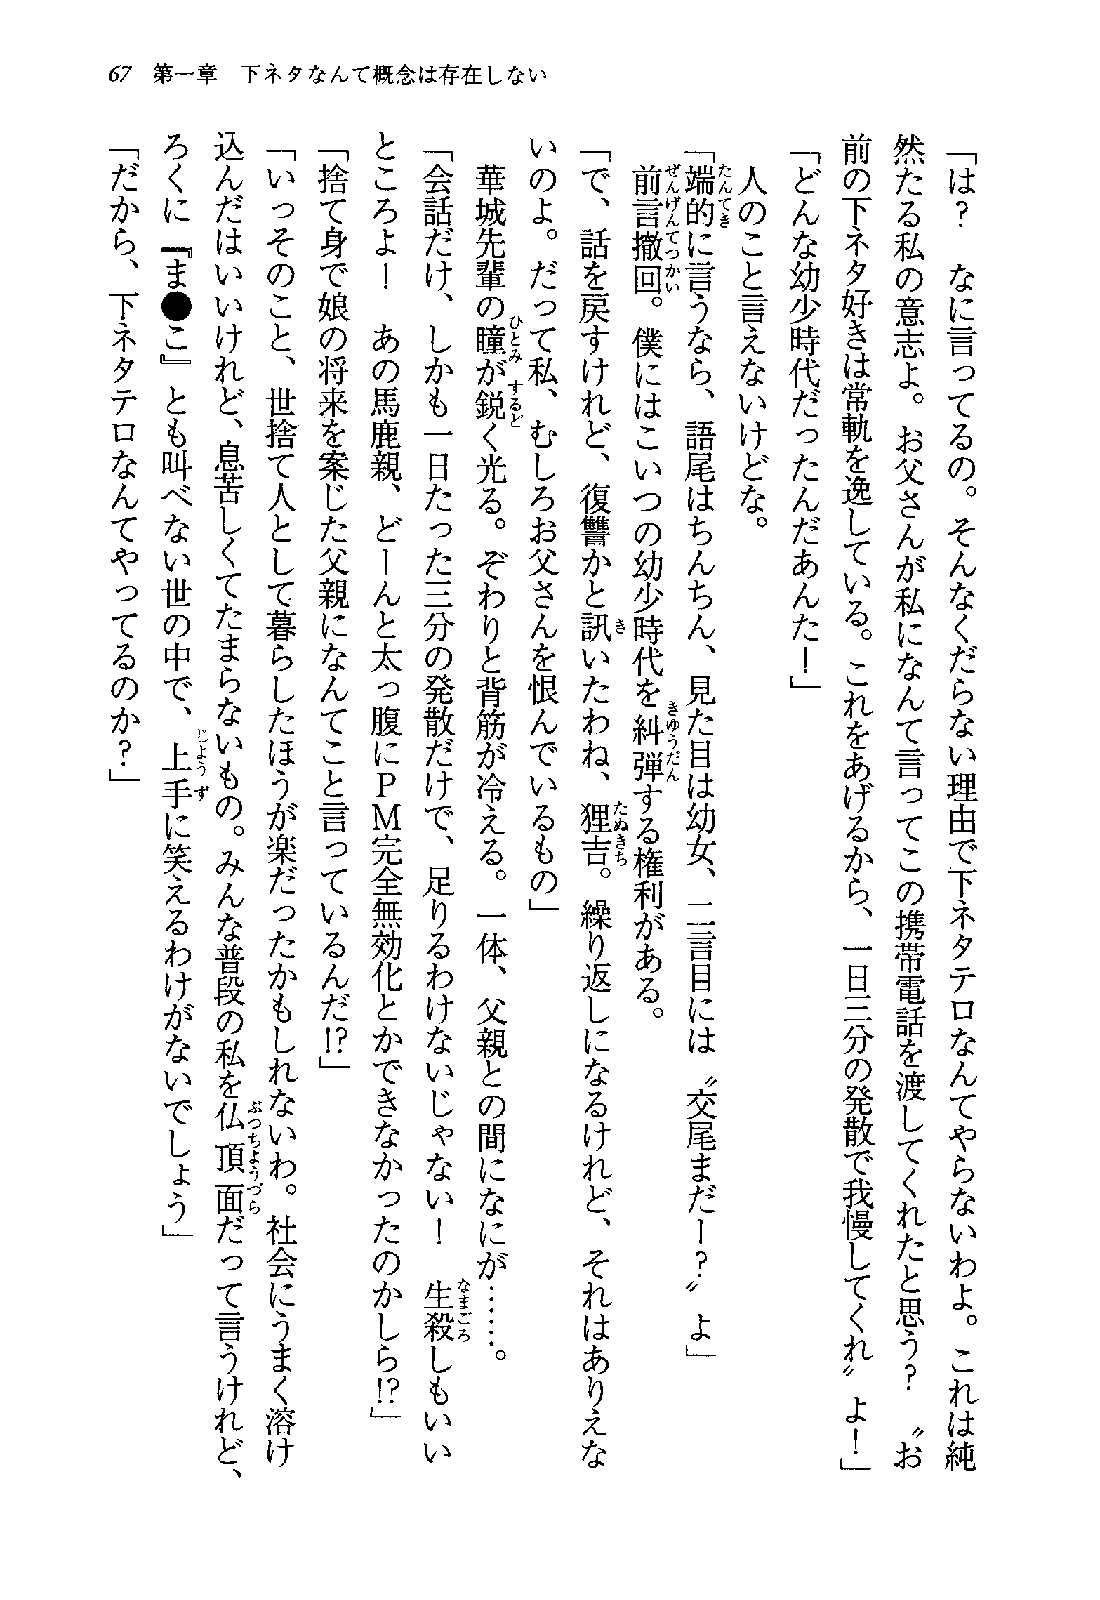 67 第一章　下ネタなんて概念は存在しない
「は？　なに言ってるの。そんなくだらない理由で下ネタテロなんてやらないわよ。これは純
然たる私の意志よ。お父さんが私になんて言ってこの携帯電話を渡してくれたと思う？　〝お
前の下ネタ好きは常軌を逸している。これをあげるから、一日三分の発散で我慢してくれ〟よ！」
「どんな幼少時代だったんだあんたー！」
人のこと言えないけどな。
「端的に言うなら、語尾はちんちん、見た目は幼女、二言目には〝交尾まだー？〟よ」
前言撤回。僕にはこいつの幼少時代を糾弾する権利がある。
「で、話を戻すけれど、復讐かと訊いたわね、狸吉。繰り返しになるけれど、それはありえな
いのよ。だって私、むしろお父さんを恨んでいるもの」
華城先輩の瞳が鋭く光る。ぞわりと背筋が冷える。一体、父親との間になにが……。
「会話だけ、しかも一日たった三分の発散だけで、足りるわけないじゃない！　生殺しもいい
ところよー！　あの馬鹿親、どーんと太っ腹にＰＭ完全無効化とかできなかったのかしら!?」
「捨て身で娘の将来を案じた父親になんてこと言っているんだ!?」
「いっそのこと、世捨て人として暮らしたほうが楽だったかもしれないわ。社会にうまく溶け
込んだはいいけれど、息苦しくてたまらないもの。みんな普段の私を仏頂面だって言うけれど、
ろくに『ま●こ』とも叫べない世の中で、上手に笑えるわけがないでしょう」
「だから、下ネタテロなんてやってるのか？」